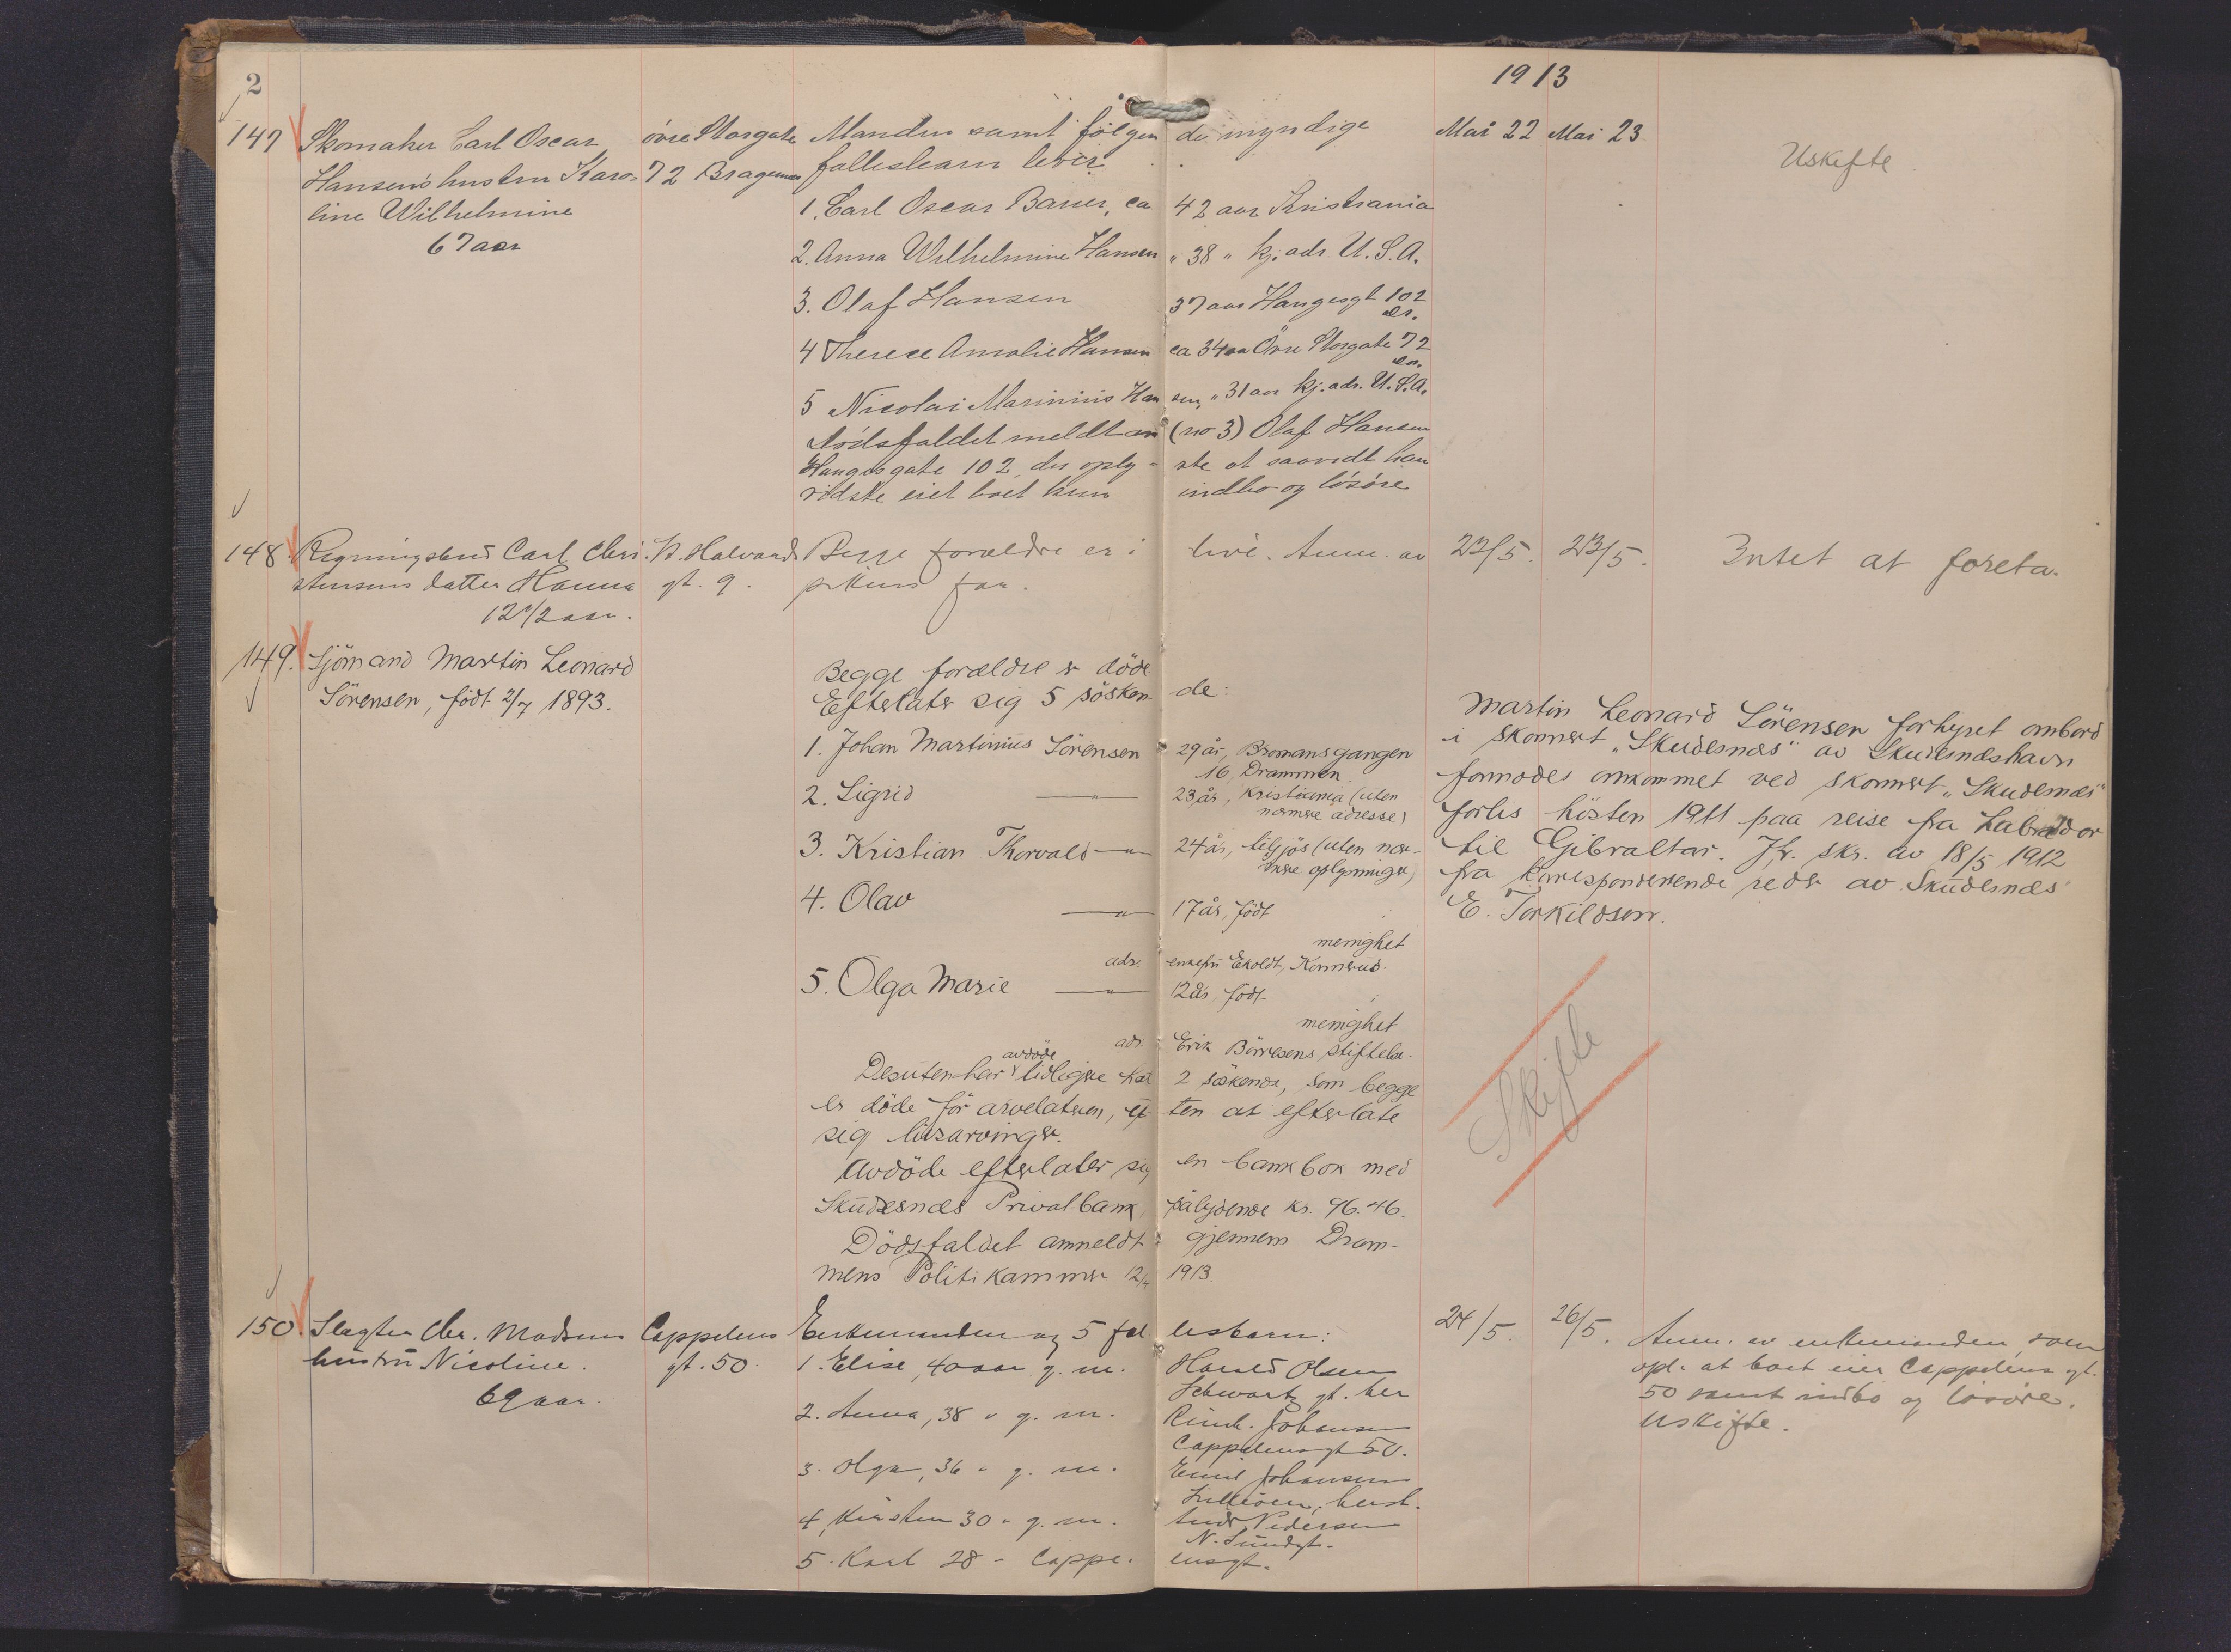 2
1913
147 Skomaker Carl Oscar øvre Storgate Manden samt følgende myndige Mai 22 Mai 23
Hansen's hustru Karo= 72 Bragernes fællesbarn lever Uskifte
line Wilhelmine 1. Carl Oscar ca 42 aar Kristiania
67 aar
2. Anna Wilhelmine Hansen " 38 " kj. adr. U.S.A.
3. Olaf Hansen 37 aar Haugesgt 102
dr.
4 Therese Amalie Hansen ca 34 aar Övre Storgate 72
dr.
5 Nicolai Marinius Hansen, " 31 aar kj. adr. U.S.A.
Dödsfaldet meldt av (no 3) Olaf Hansen
Haugesgate 102, der oply-ste at saavidt han
vidste eiet boet kun indbo og lösöre
148. Carl Chri- St. Halvards Begge forældre er i live. Anm. av 23/5. 23/5. Intet at foreta.
stensens datter Hanna gt. 9. pikens far.
12 1/2 aar.
149. Sjömand Martin Leonard Begge forældre er döde
Sörensen, født 2/7 1893. Efterlater sig 5 söskende:
Martin Leonard Sörensen forhyret ombord
1. Johan Martinius Sörensen 29 år, Bromansgangen
16, Drammen
i skonnert "Skudesnæs" av Skudesnæshavn
2. Sigrid —"— 23 år, Kristiania (uten
nærmere adresse)
formodes omkommet ved skonnert "Skudesnæs"
forlis hösten 1911 paa reise fra Labrador
3. Kristian Thorvald —"— 24 år, tilsjös (uten nær-
mere oplysninger)
til Gibraltar. Jfr. skr. av 18/5 1912
fra korresponderende reder av Skudesnæs
4. Olav —"— 17 år, født
E. Torkildsen.
menighet
adr. enkefru Ekoldt, Konnerud.
5. Olga Marie —"— 12 år, født
menighet
adr. Erik Börresens stiftelse.
Desuten har avdöde tidligere hat 2 söskende, som begge
er döde för arvelateren, uten at efterlate
sig livsarvinger.
Skifte
Avdöde efterlater sig en bankbok med
Skudesnæs Privatbank, pålydende kr. 96.46.
Dödsfaldet anmeldt gjennem Dram-
mens Politikammer 1913.
150. Slagter Chr. Madsens Cappelens Enkemanden og 5 fællesbarn: 24/5. 26/5. Anm. av enkemanden, som
hustru Nicoline. gt. 50. 1. Elise, 40 aar g. m. Harald Olsen
Schwartz gt. her
opl. at boet eier Cappelens gt.
69 aar.
50 samt indbo og lösöre.
2. Anna, 38 " g. m. Johansen
Cappelensgt 50.
Uskifte.
3. Olga, 36 " g. m. Emil Johansen
4. Kirsten 30 " g. m. Andr. Pedersen
N. Sundgt.
5. Karl 28 - Cappelensgt.